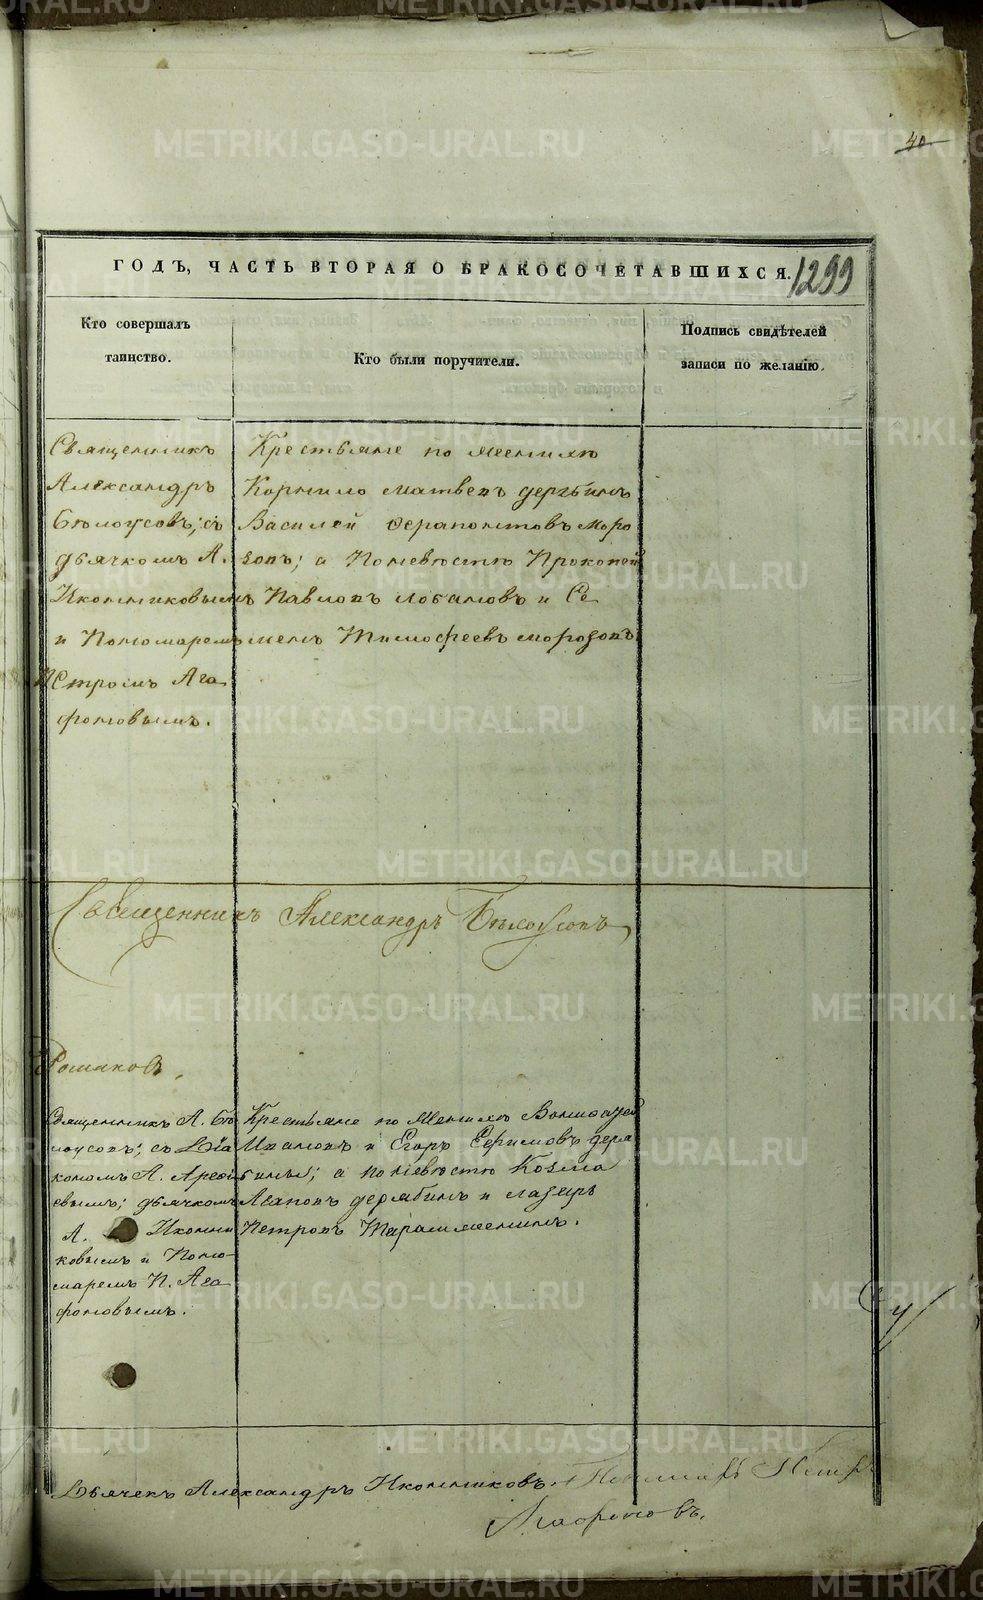 40
ГОДЪ, ЧАСТЬ ВТОРАЯ О БРАКОСОЧЕТАВШИХСЯ.
1299
Кто совершалъ
таинство.
Кто были поручители.
Подпись свидѣтелей
записи по желанію.
Священникъ
Александръ
Бѣлоусовъ; съ
дьячкомъ А.
Иконниковымъ
и Пономаремъ
Петромъ Ага
фоновымъ.
Крестьяне по женихѣ
Корнило Матвеевъ
Василей Ферапонтовъ Моро
зовъ; а По невѣстѣ Прокопей
Павловъ Лобановъ и Се
менъ Тимофеевъ Морозовъ
Священникъ Александръ Бѣлоусовъ
Священникъ А. Бѣ
лоусовъ; съ Діа
кономъ А.
евымъ; дьячкомъ
А. Иконни
ковымъ и Поно-
маремъ П. Ага
фоновымъ.
Крестьяне по Женихѣ
Ивановъ и Егоръ Ефимовъ Деря
бины; а по невѣстѣ Козма
Дерябинъ и Лазарь
Петровъ
Дьячекъ Александръ Иконниковъ. Пономарь Петръ
Агафоновъ.
METRIKI.GASO-URAL.RU